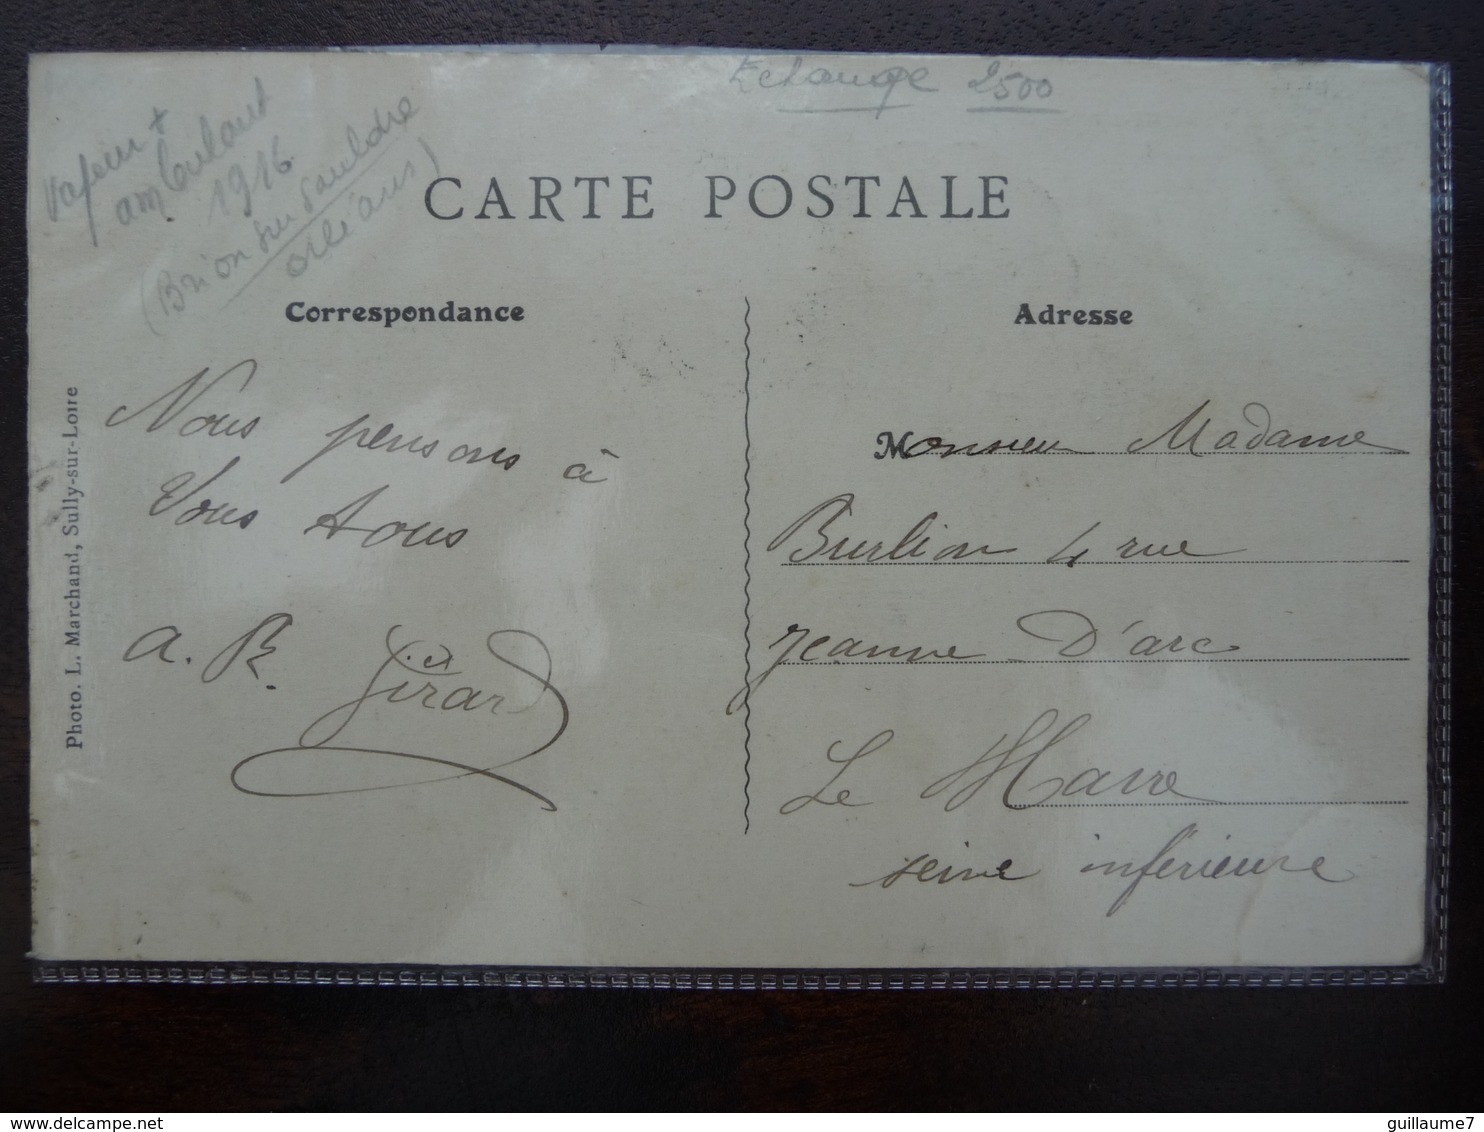 Echange 2500
Vapeur +
ambulant
1916
(Brion sur Sauldre
orléans)
CARTE POSTALE
Correspondance
Adresse
Nous pensons à
Vous tous
a. R. Girard
Monsieur Madame
Burlion 4 rue
Jeanne D'arc
Le Havre
seine inférieure
Photo. L. Marchand, Sully-sur-Loire
delcampe.net
guillaume7